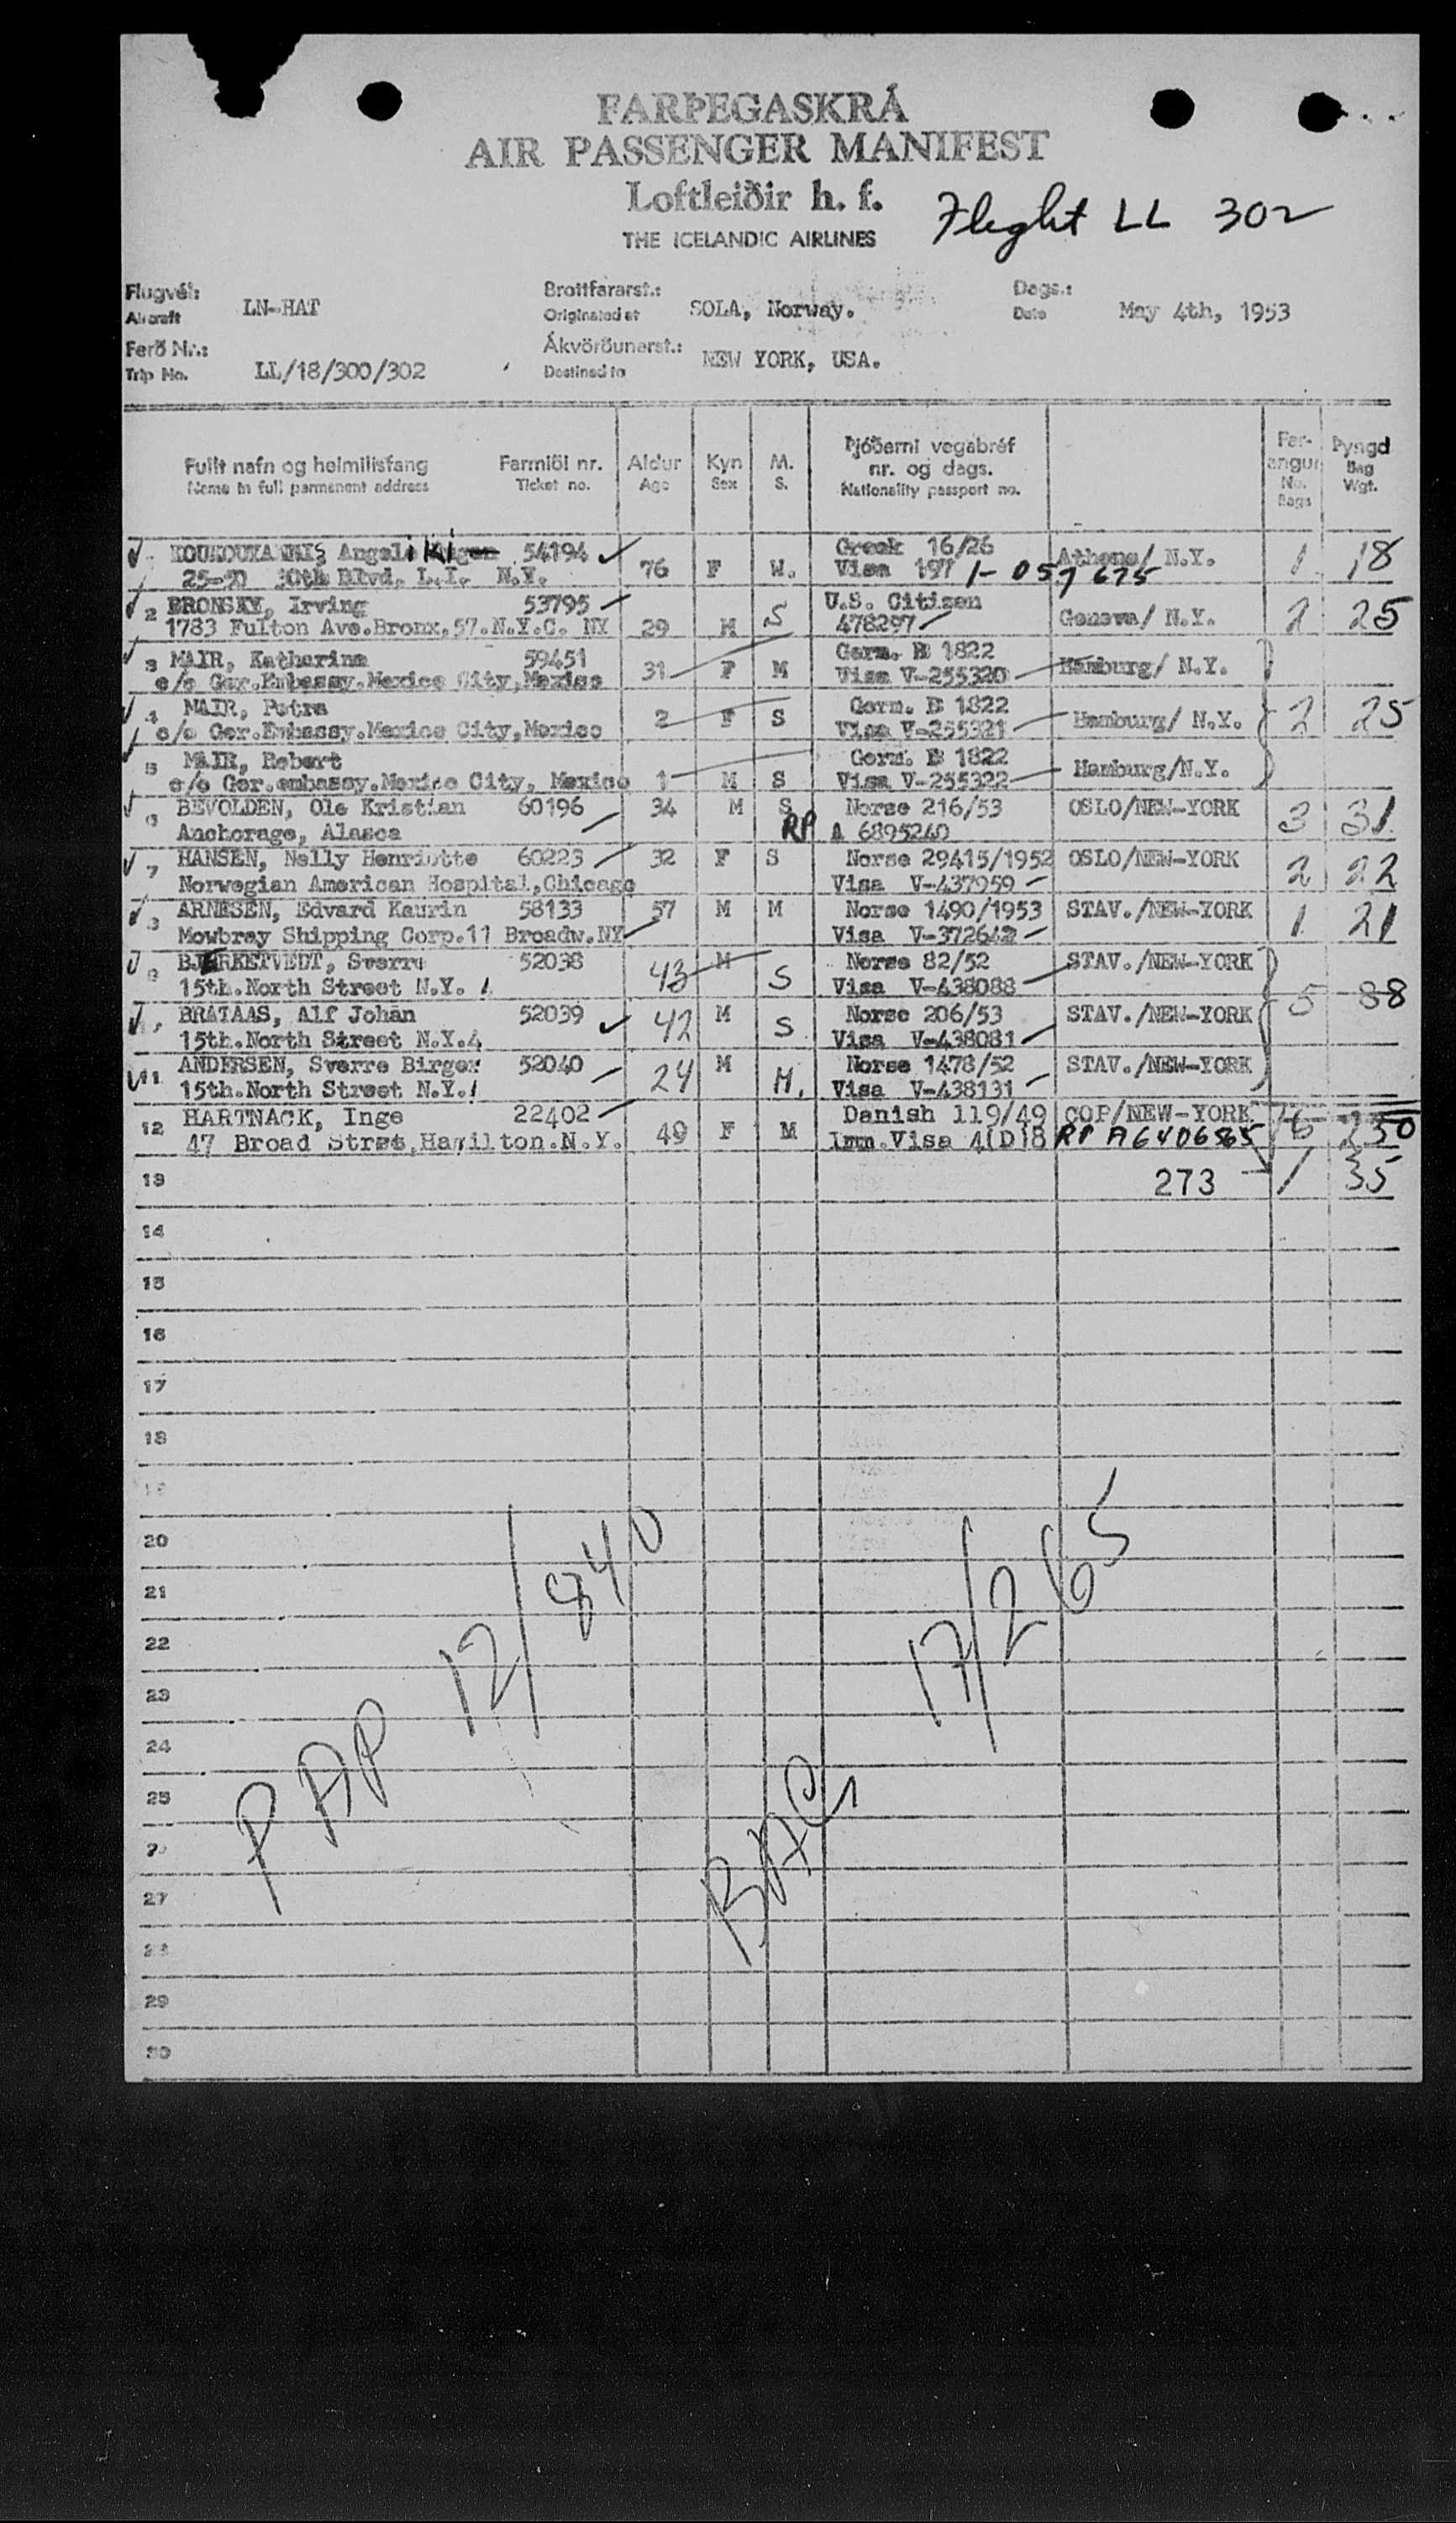 FARÞEGASKRÁ
AIR PASSENGER MANIFEST
Loftleiðir h. f.
THE ICELANDIC AIRLINES
Flight LL 302
Flugvél: Aircraft LN-HAT
Brottfararst.: Originated at SOLA, Norway.
Dags.: Date May 4th, 1953
Ferð Nr.: Trip No. LL/18/300/302
Ákvörðunarst.: Destined to NEW YORK, USA.
Fullt nafn og heimilisfang Farmiði nr. Aldur Kyn M. Þjóðerni vegabréf nr. og dags. Far-angur Þyngd
Name in full permanent address Ticket no. Age Sex S. Nationality passport no. No. Bags Bag Wgt.
Angeliki 54194 Greek 16/26 Athens/ N.Y. 1 18
25-50 30th Blvd. L.I. N.Y. 76 F W. Visa 1-057675
2 BRONSKY, Irving 53795 S U.S. Citizen 2 25
1783 Fulton Ave.Bronx,57.N.Y.C. NY 29 M 478297 Geneva/ N.Y.
3 MAIR, Katharina 59451 31 F M Germ. B 1822 Hamburg/ N.Y.
c/o Ger.Embassy.Mexico City,Mexico Visa V-255320
4 MAIR, Petra 2 F S Germ. B 1822 Hamburg/ N.Y. 2 25
c/o Ger.Embassy.Mexico City,Mexico Visa V-255321
5 MAIR, Robert Germ. B 1822 Hamburg/N.Y.
c/o Ger.embassy.Mexico City, Mexico 1 M S Visa V-255322
6 BEVOLDEN, Ole Kristian 60196 34 M S Norse 216/53 OSLO/NEW-YORK 3 31
Anchorage, Alasca RP A 6895240
7 HANSEN, Nelly Henriette 60223 32 F S Norse 29415/1952 OSLO/NEW-YORK 2 22
Norwegian American Hospital,Chicago Visa V-437959
8 ARNESEN, Edvard Kaurin 58133 57 M M Norse 1490/1953 STAV./NEW-YORK 1 21
Mowbray Shipping Corp.11 Broadw.NY Visa V-372642
9 BJERKETVEDT, Sverre 52038 43 M S Norse 82/52 STAV./NEW-YORK
15th.North Street N.Y. Visa V-438088 5 88
BRATAAS, Alf Johan 52039 42 M S Norse 206/53 STAV./NEW-YORK
15th.North Street N.Y. Visa V-438081
11 ANDERSEN, Sverre Birger 52040 24 M M. Norse 1478/52 STAV./NEW-YORK
15th.North Street N.Y. Visa V-438131
12 HARTNACK, Inge 22402 49 F M Danish 119/49 COP/NEW-YORK 16 230
47 Broad Stret,Hamilton.N.Y. Imm.Visa 4(D)8 RP A6406565
13 273 1 35
14
15
16
17
18
20
21
22
23
24
25
27
29
30
PAP 12/840
BAG 17/265